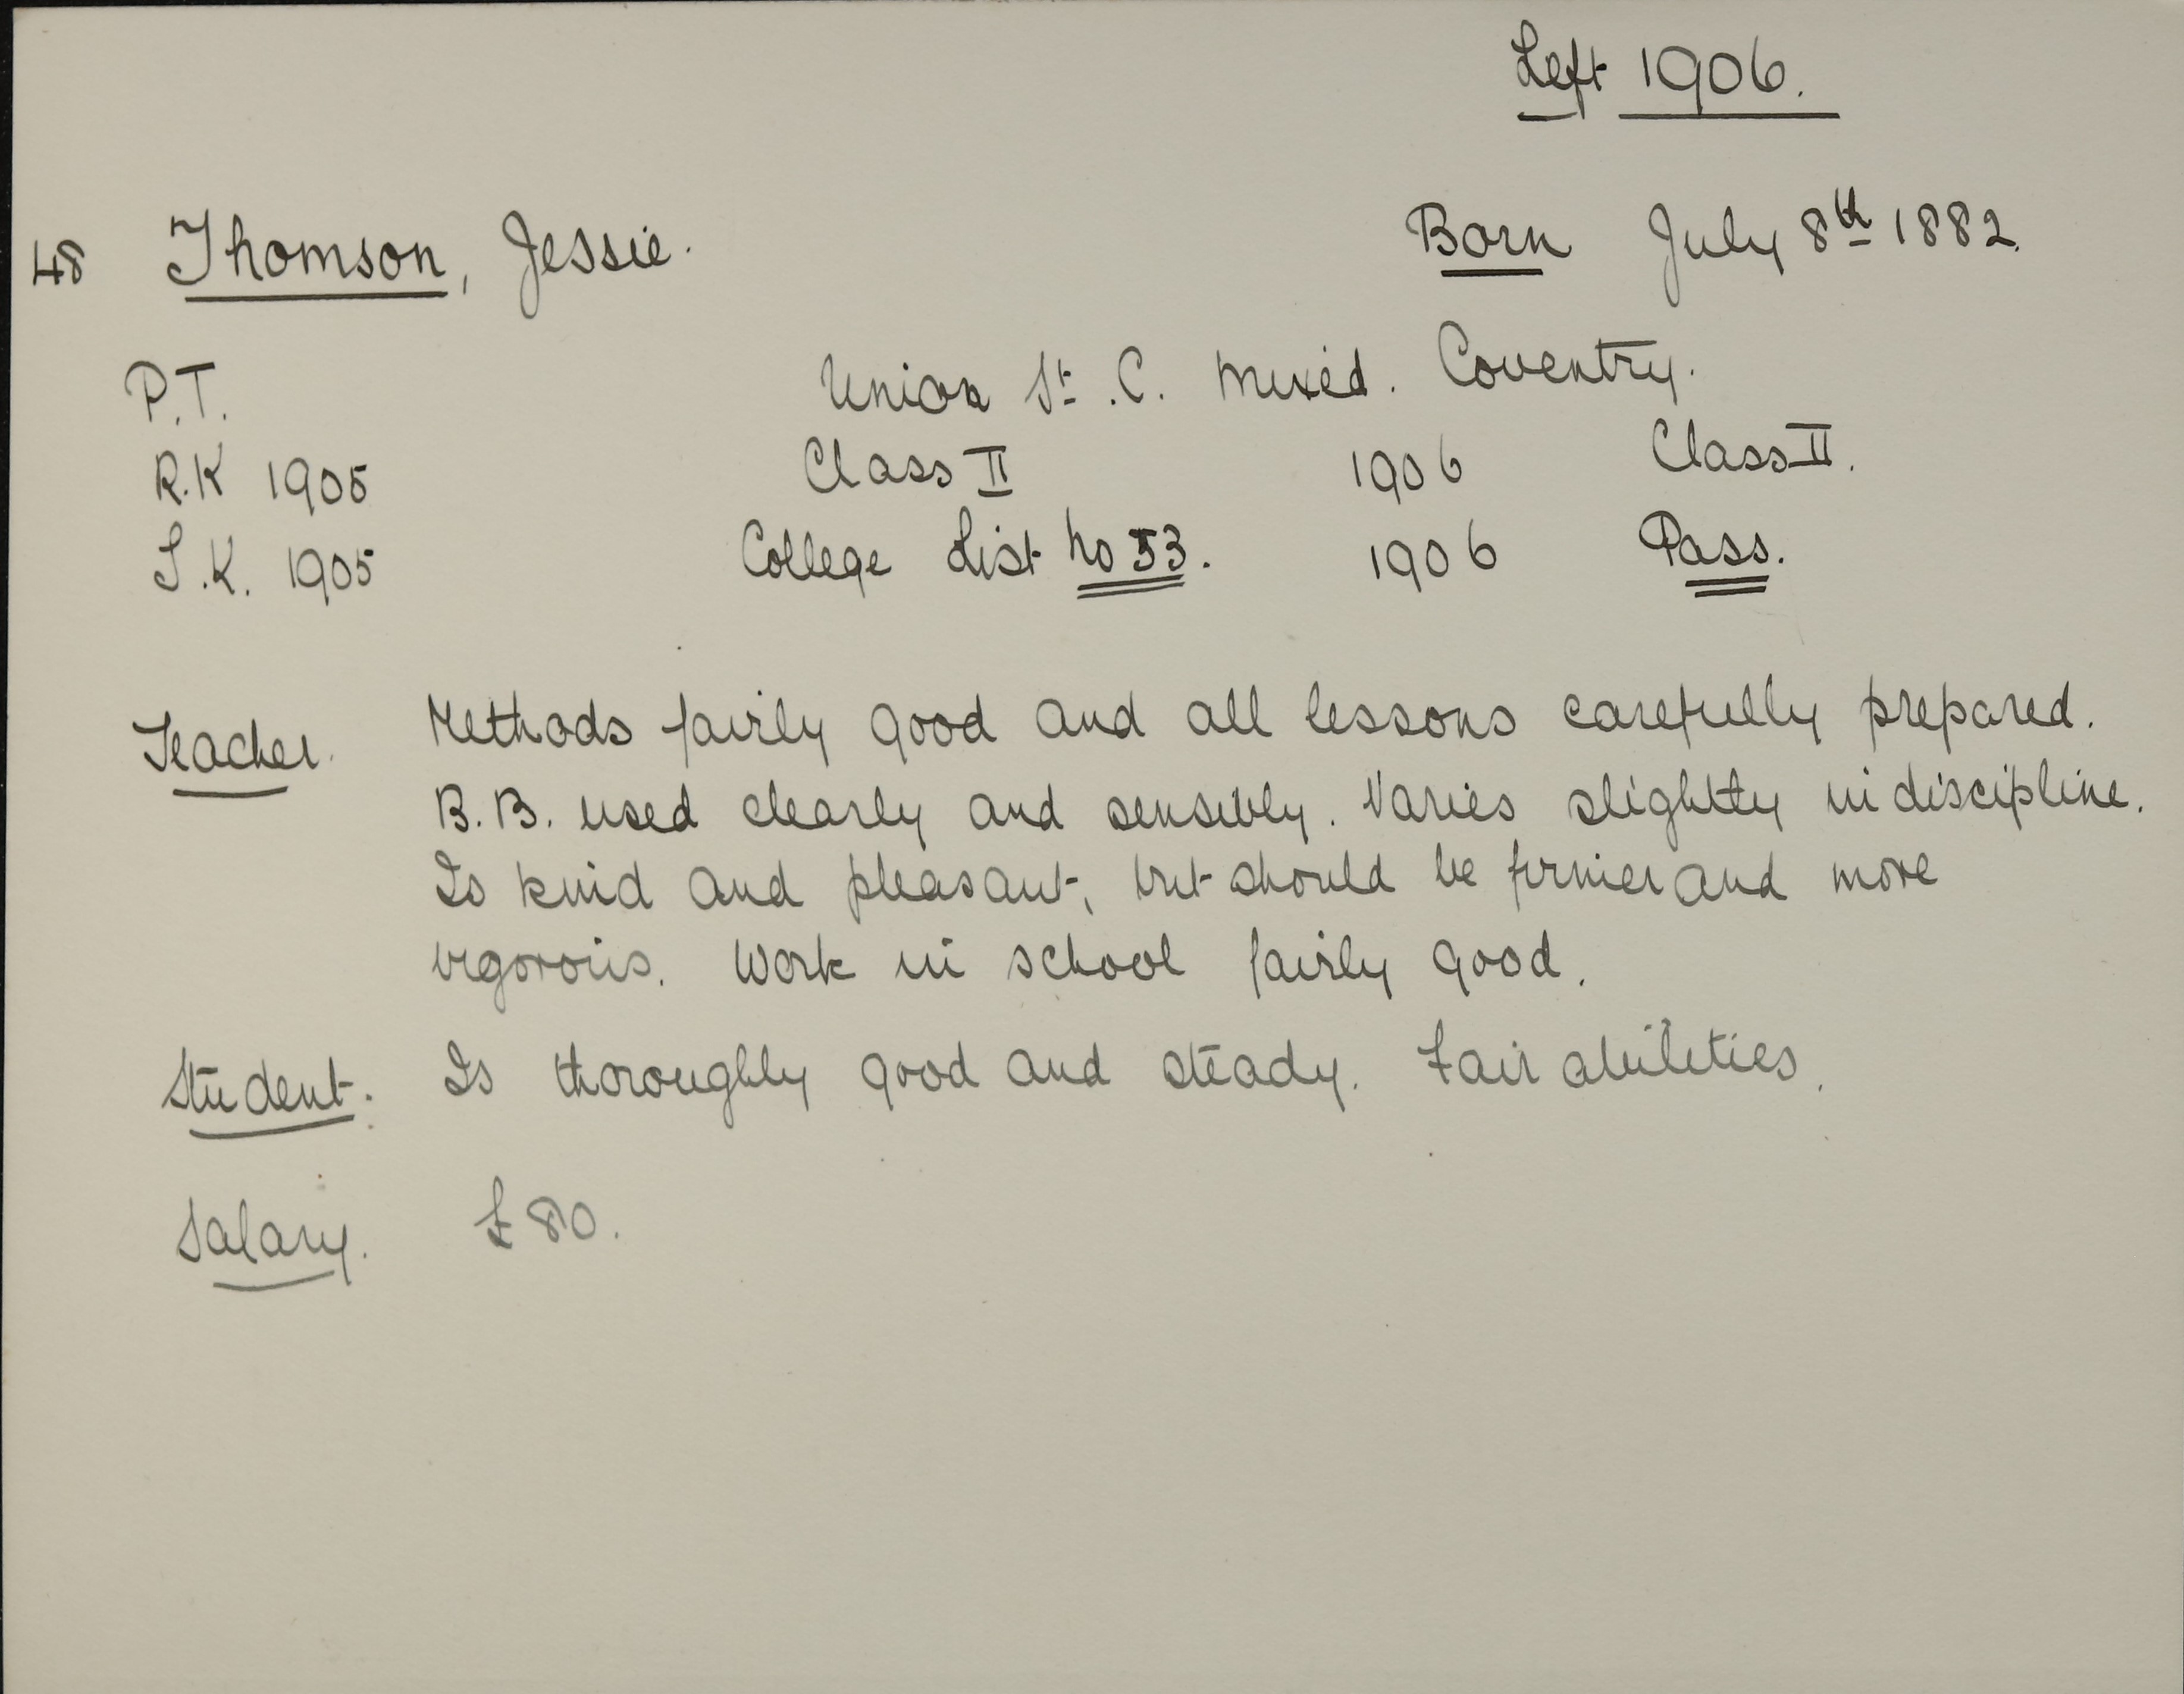 Left 1906.
48 Thomson, Jessie. Born July 8th 1882.
P.T. Union St. C. Mixed. Coventry.
R.K 1905 Class II 1906 Class II.
S.K. 1905 College List No 53. 1906 Pass.
Teacher. Methods fairly good and all lessons carefully prepared.
B.B. used clearly and sensibly. Varies slightly in discipline.
Is kind and pleasant, but should be firmer and more
vigorous. Work in school fairly good.
Student. Is thoroughly good and steady. Fair abilities.
Salary. £80.